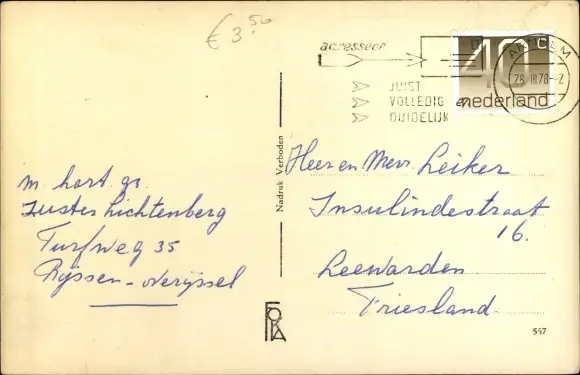 € 3.50
adresseer
JUIST
VOLLEDIG en
DUIDELIJK
40 c
nederland
ARNHEM
28.III.78-2
m hart. gr.
Zuster Lichtenberg
Turfweg 35
Rijssen - Overijssel
Nadruk Verboden
Heer en Mevr. Leiker
Insulindestraat
16.
Leewarden
Friesland.
FOKA
557